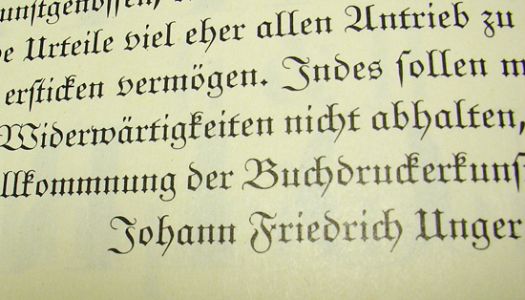 unſtgenoſſen,
e Urteile viel eher allen Antrieb zu
erſticken vermögen. Indes ſollen m
Widerwärtigkeiten nicht abhalten,
llkommnung der Buchdruckerkunſ
Johann Friedrich Unger